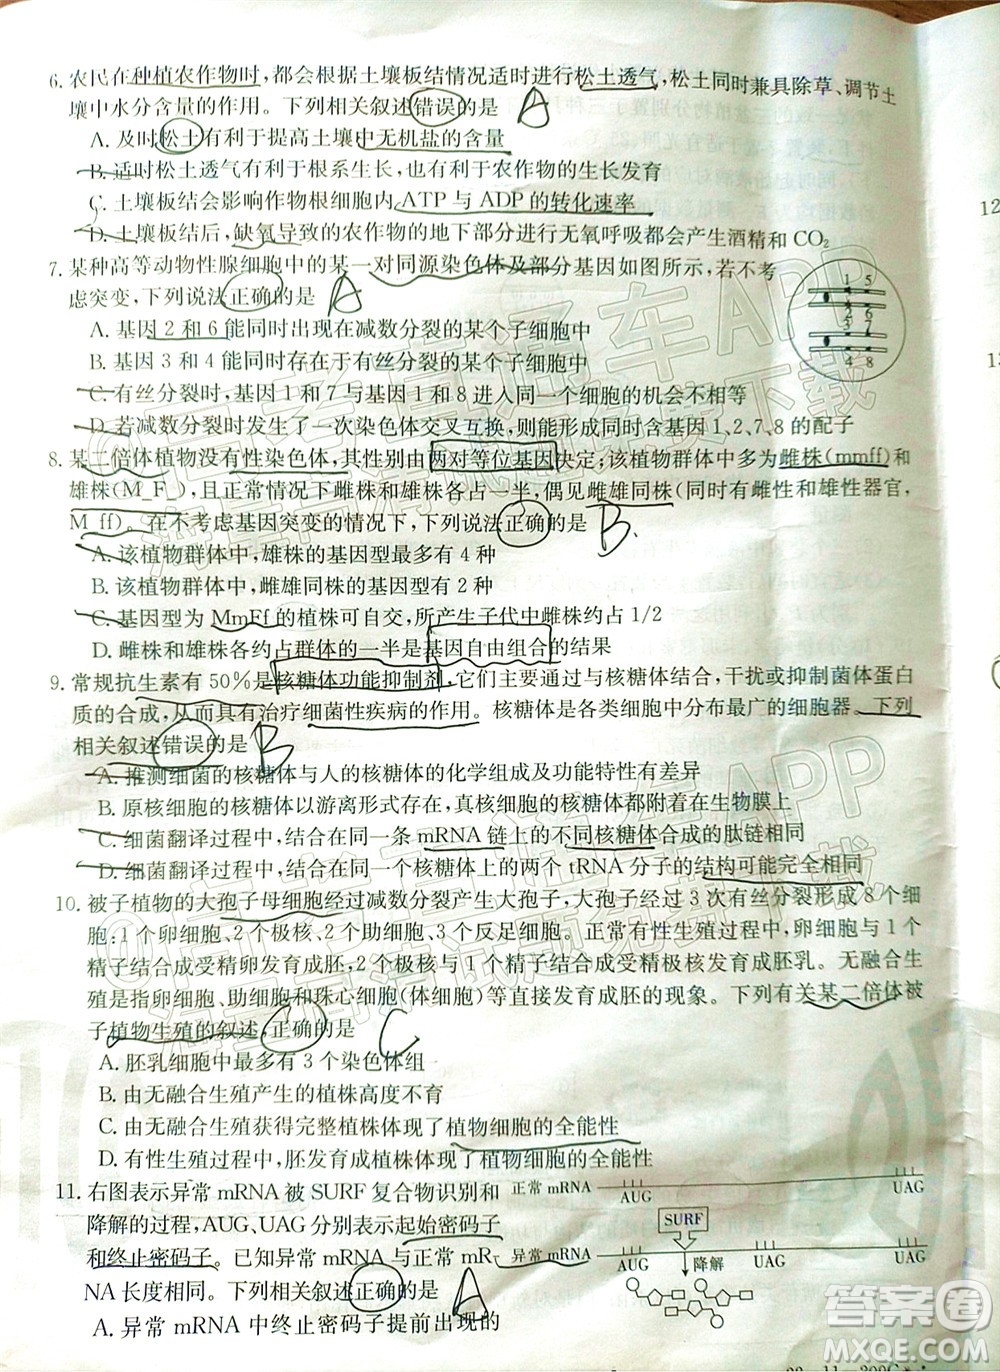 6. 农民在种植农作物时,都会根据土壤板结情况适时进行松土透气,松土同时兼具除草、调节土
壤中水分含量的作用。下列相关叙述错误的是 A
A. 及时松土有利于提高土壤中无机盐的含量
B. 适时松土透气有利于根系生长,也有利于农作物的生长发育
C. 土壤板结会影响作物根细胞内 ATP 与 ADP 的转化速率
D. 土壤板结后,缺氧导致的农作物的地下部分进行无氧呼吸都会产生酒精和 CO₂
7. 某种高等动物性腺细胞中的某一对同源染色体及部分基因如图所示,若不考
虑突变,下列说法正确的是 A
1 5
2 6
3 7
4 8
A. 基因 2 和 6 能同时出现在减数分裂的某个子细胞中
B. 基因 3 和 4 能同时存在于减数分裂的某个子细胞中
C. 有丝分裂时,基因 1 和 7 与基因 1 和 8 进入同一个细胞的机会不相等
D. 若减数分裂时发生了一次染色体交叉互换,则能形成含基因 1、2、7、8 的配子
8. 某二倍体植物没有性染色体,其性别由两对等位基因决定;该植物群体中多为雌株(mmff)和
雄株(M_F_),且正常情况下雌株和雄株各占一半,偶见雌雄同株(同时有雌性和雄性器官,
M_ff)。在不考虑基因突变的情况下,下列说法正确的是 B
A. 该植物群体中,雄株的基因型最多有 4 种
B. 该植物群体中,雌雄同株的基因型有 2 种
C. 基因型为 MmFf 的植株可自交,所产生子代中雌株约占 1/2
D. 雌株和雄株各约占群体的一半是基因自由组合的结果
9. 常规抗生素有 50%是核糖体功能抑制剂,它们主要通过与核糖体结合、干扰或抑制菌体蛋白
质的合成,从而具有治疗细菌性疾病的作用。核糖体是各类细胞中分布最广的细胞器。下列
相关叙述错误的是 B
A. 推测细菌的核糖体与人的核糖体的化学组成及功能特性有差异
B. 原核细胞的核糖体以游离形式存在,真核细胞的核糖体都附着在生物膜上
C. 细菌翻译过程中,结合在同一条 mRNA 链上的不同核糖体合成的肽链相同
D. 细菌翻译过程中,结合在一个核糖体上的两个 tRNA 分子的结构可能完全相同
10. 被子植物的大孢子母细胞经过减数分裂产生大孢子,大孢子经过 3 次有丝分裂形成 8 个细
胞:1 个卵细胞、2 个极核、2 个助细胞、3 个反足细胞。正常有性生殖过程中,卵细胞与 1 个
精子受精形成受精卵发育成胚,2 个极核与 1 个精子结合成受精极核发育成胚乳。无融合生
殖是指卵细胞、助细胞和珠心细胞(体细胞)等直接发育成胚的现象。下列有关某二倍体被
子植物生殖的叙述,正确的是 C
A. 胚乳细胞中最多有 3 个染色体组
B. 由无融合生殖产生的植株高度不育
C. 由无融合生殖获得植株体现了植物细胞的全能性
D. 由有性生殖过程中,胚发育成植株体现了植物细胞的全能性
11. 右图表示异常 mRNA 被 SURF 复合物识别和
降解的过程,AUG、UAG 分别表示起始密码子
和终止密码子。已知异常 mRNA 与正常 mR-
NA 长度相同。下列相关叙述正确的是 A
A. 异常 mRNA 中终止密码子提前出现的
正常 mRNA
AUG UAG
SURF
异常 mRNA
AUG 降解 UAG
12
13
答案圈
MXQE.COM